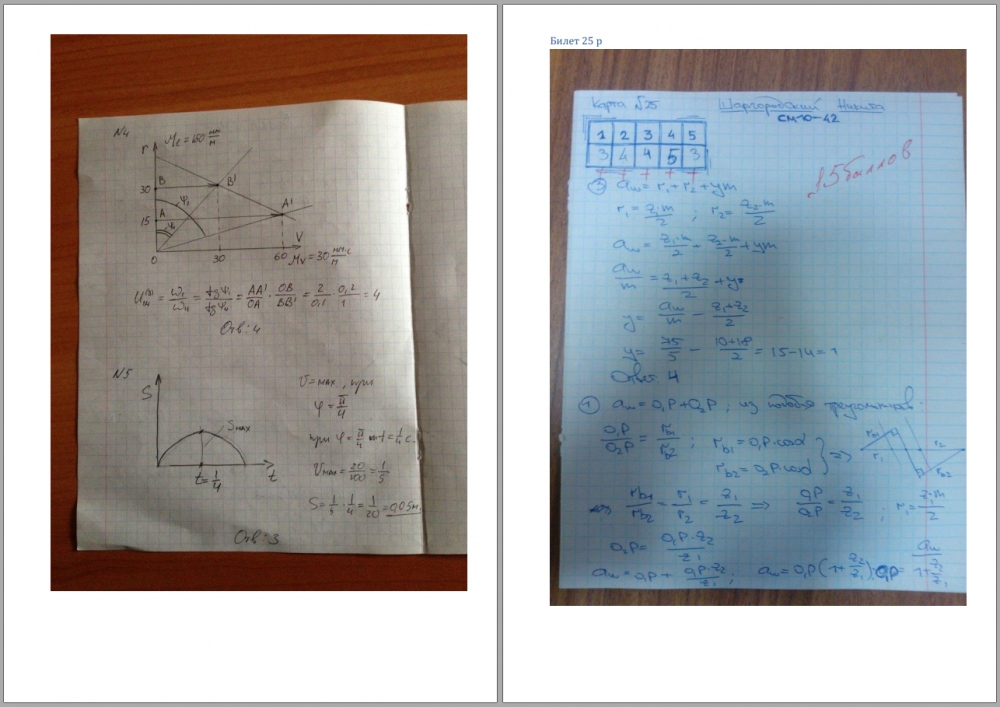 N4
r
μr = 150 мм/м
B
B'
30
φ1
A
A'
15
φ4
V
0
30
60
μv = 30
= ω1/ω4 = tgφ1/tgφ4 = AA'/OA · OB/BB' = 2/0,1 · 0,2/1 = 4
Отв: 4
N5
S
Smax
t = 1/4
t
V = max, при
φ = π/4
при φ = π/4
Vmax = 20/100 = 1/5
S = 1/5 · 1/4 = 1/20 = 0,05м
Отв: 3
Билет 25 р
Карта №25
Шаргородский Никита
СМ-10-42
1 2 3 4 5
3 4 4 5 3
+ + + + +
15 баллов
3 aw = r1 + r2 + ym
r1 = z1·m/2 ; r2 = z2·m/2
aw = z1·m/2 + z2·m/2 + ym
aw/m = z1+z2/2 + y
y = aw/m - z1+z2/2
y = 75/5 - 10+18/2 = 15-14 = 1
Ответ 4
1 aw = O1P + O2P, из подобия треугольников:
O1P/O2P = rb1/rb2 ; rb1 = O1P·cosα
rb2 = O2P·cosα
=>
rb1
r1
r2
rb2
=> rb1/rb2 = r1/r2 = z1/z2 => O1P/O2P = z1/z2 ; r1 = z1·m/2
O2P = O1P·z2/z1
aw = O1P + O1P·z2/z1 ; aw = O1P(1 + z2/z1) ; O1P = aw/1+z2/z1